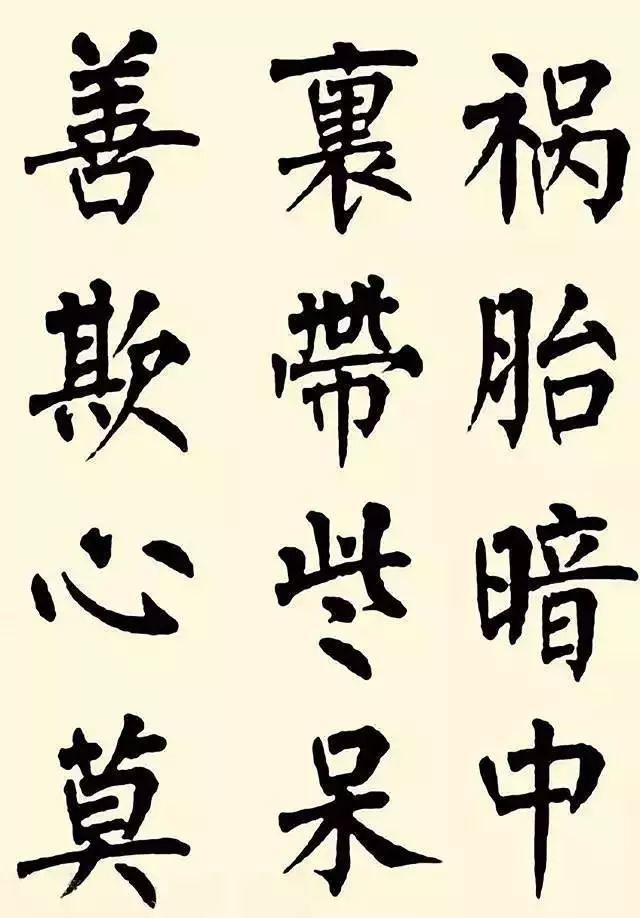 祸胎暗中
裏帶些呆
善欺心莫